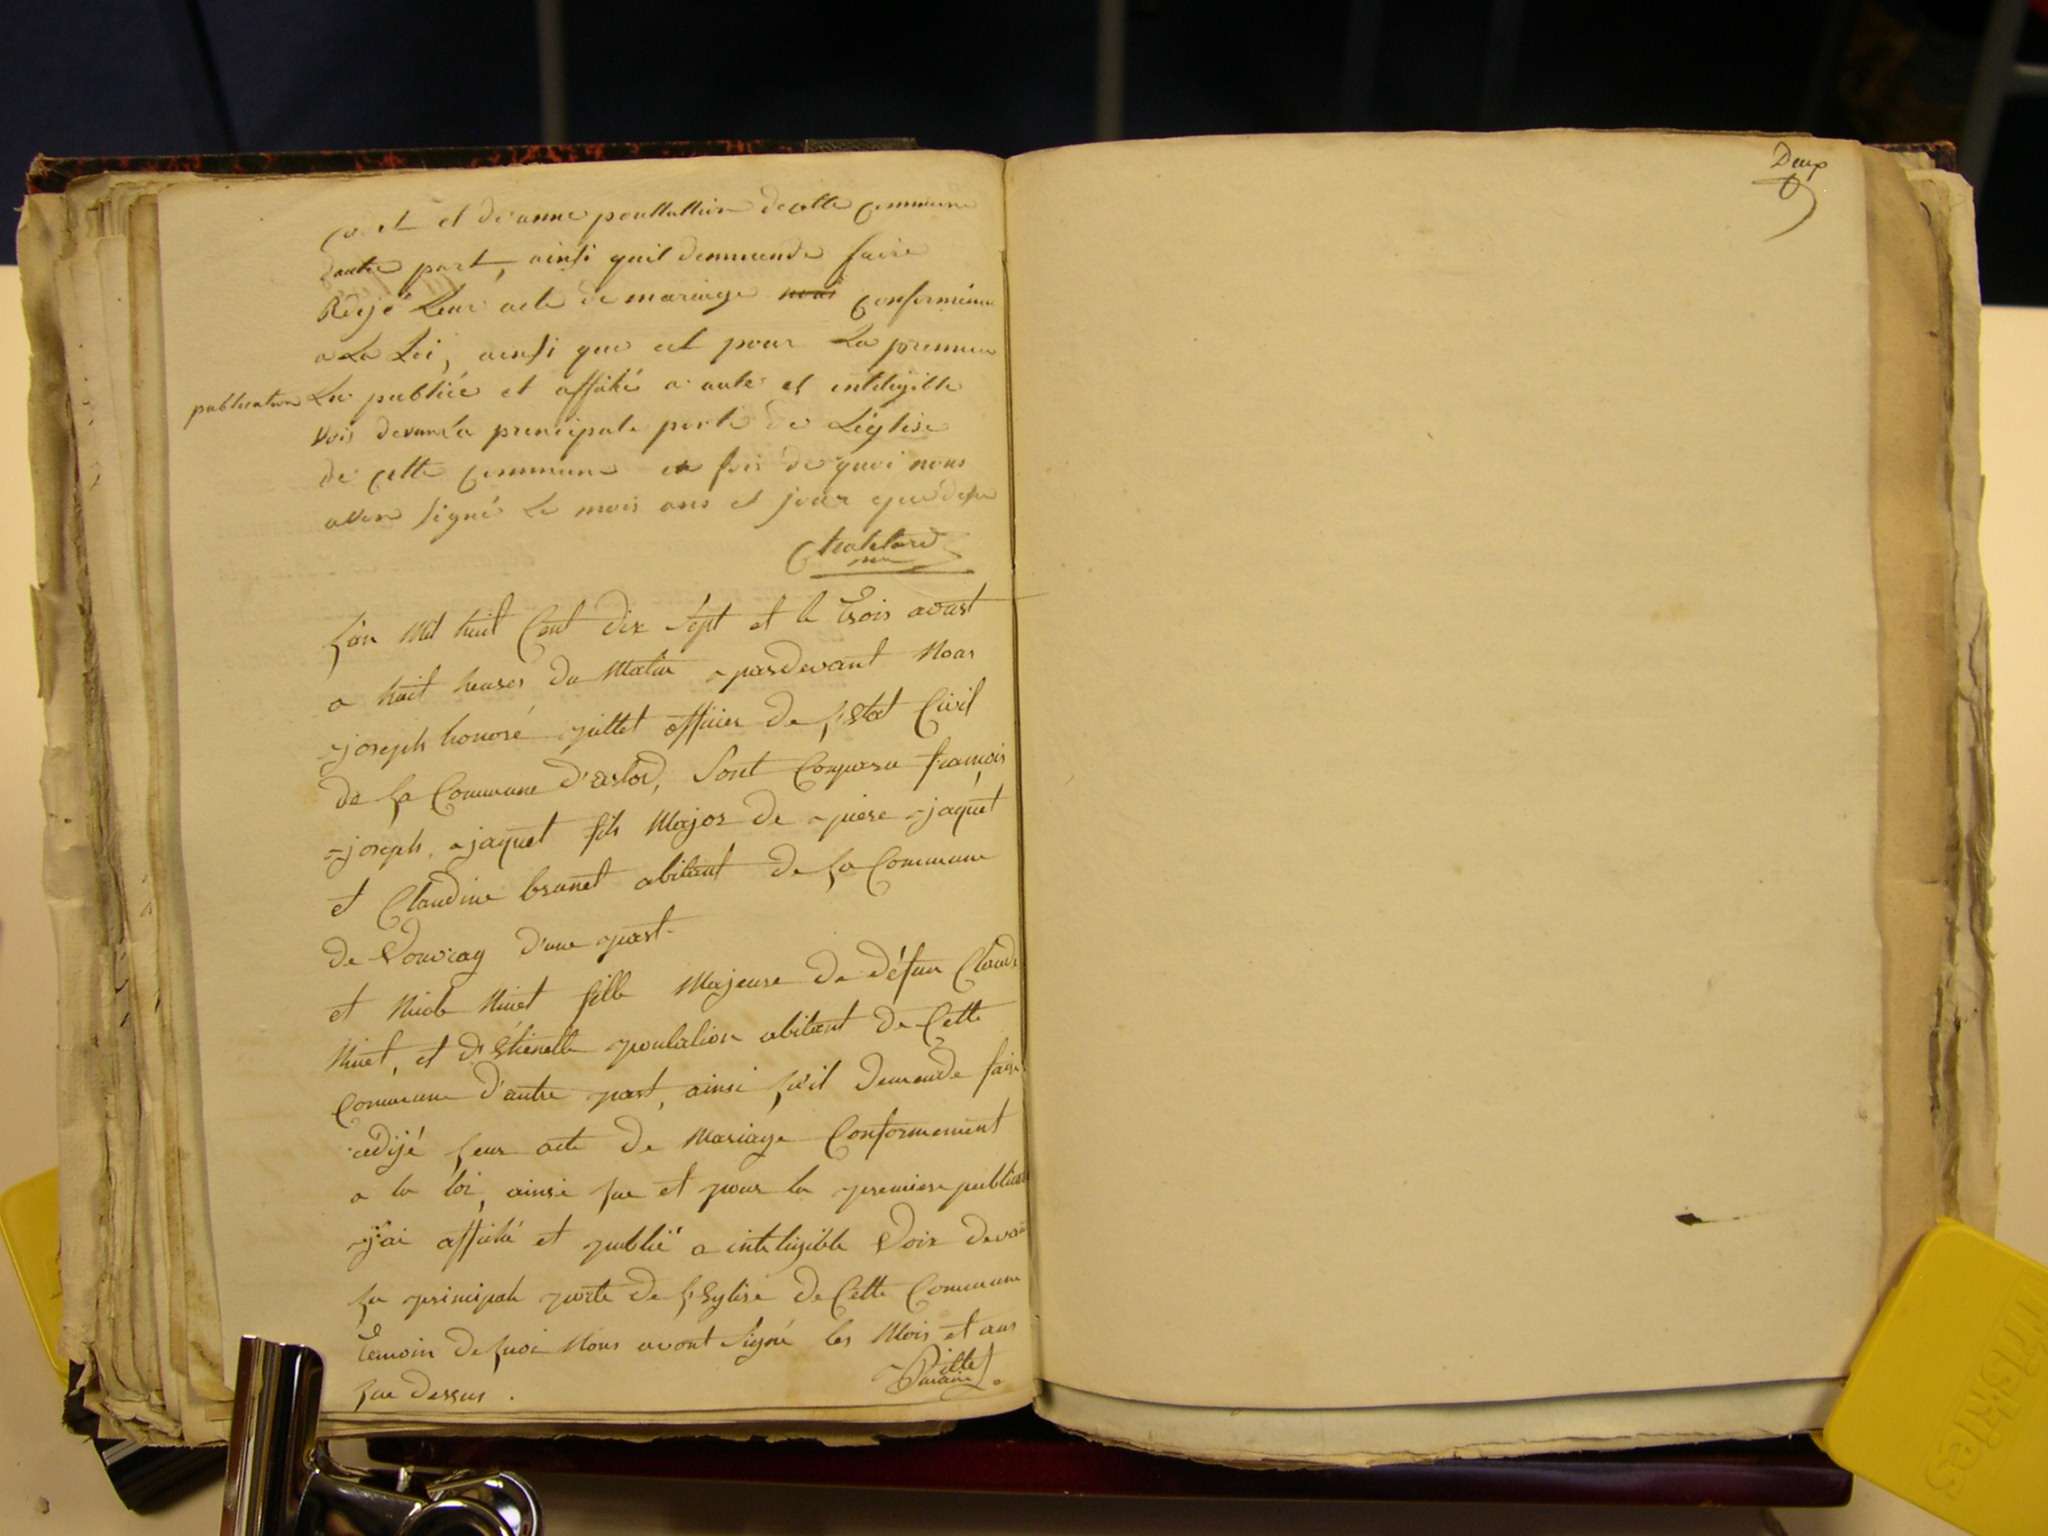 et de anne poullattion de cette Commune
dautre part, ainsi quil demmande faire
Redijé Leur acte de mariage nous conformémen
a La Loi, ainsi que est pour La premiere
publication Lu publiée et affiché a aute et inteligible
Vois devant la principale porte de Léglise
de cette Commune en fois de quoi nous
avon signé Le mois ans et jour que desu
Chatelard
me
Lan Mil huit Cent dix sept et le trois aoust
a huit heures du Matin pardevant Nous
joseph honoré pittet officier de L'Etat Civil
de La Commune d'arlod, Sont Comparu françois
joseph jaquet fils Major de piere jaquet
et Claudine brunet abitant de La Commune
de Vouvray d'une part
et Nicole Ninet fille Majeure de défun Claude
Ninet, et d'Etienette poulalion abitant de Cette
Commune d'autre part, ainsi qu'il demende faire
redijé Leur acte de Mariage Conformement
a la loi, ainsi que et pour la premiere publication
j'ai affiché et publié a inteligible Voix devan
La principale porte de L'Eglise de Cette Commune
Temoin de quoi Nous avont Signé les Mois et ans
que dessus .
Pittet
Deux